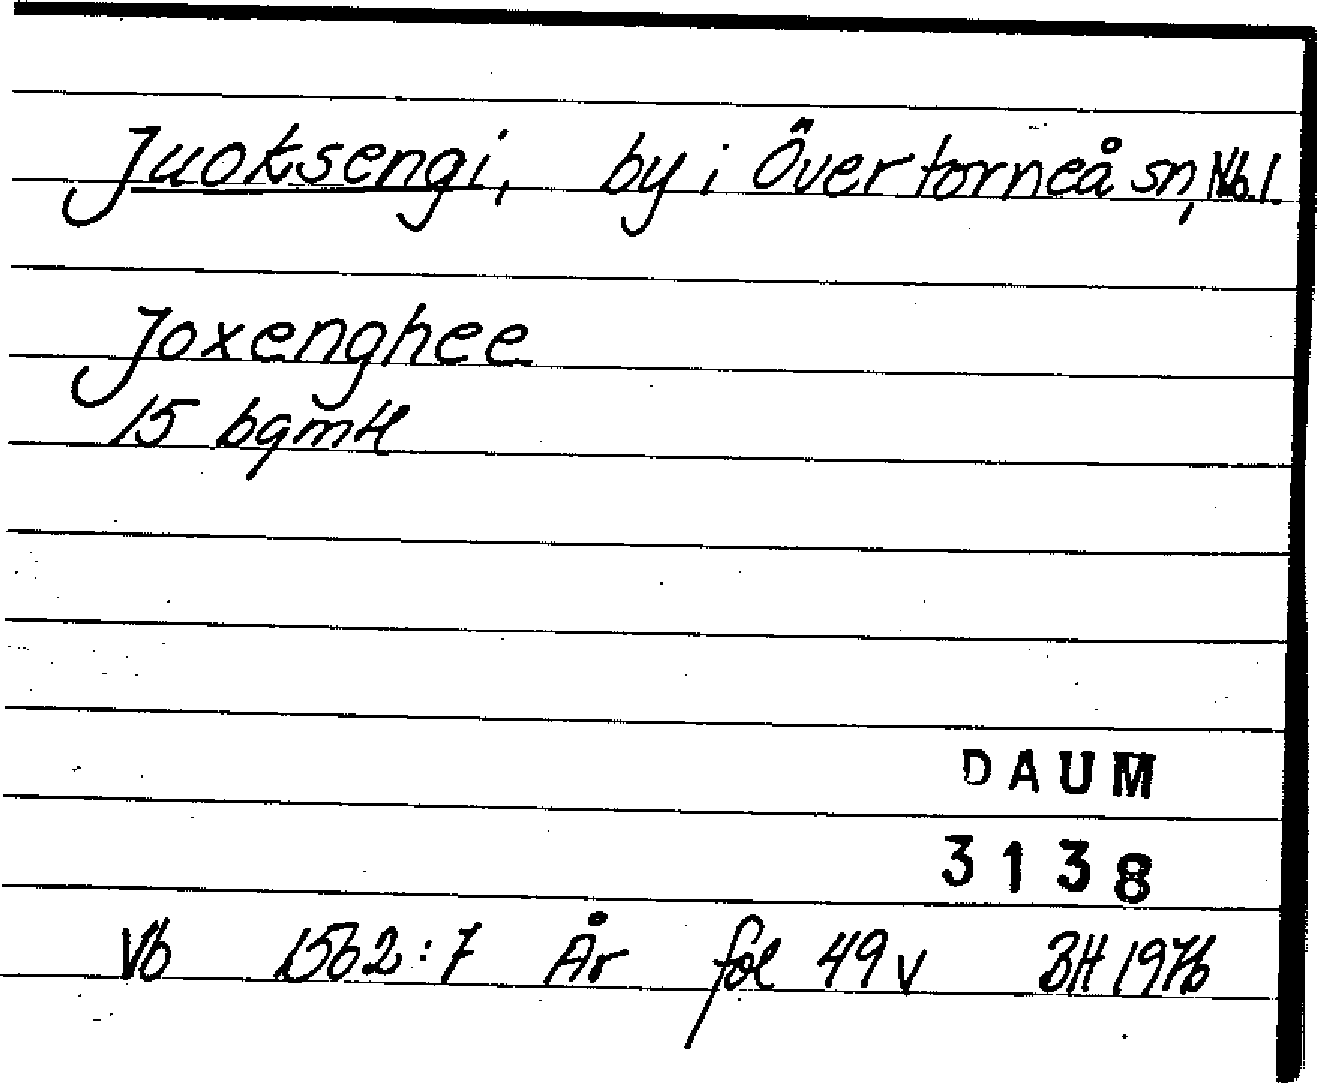 Juoksengi, by i Övertorneå sn, Nb. l.
Joxenghee
15 bgmtl
DAUM
3138
Vb 1562:7 År fol 49 v BH 1976